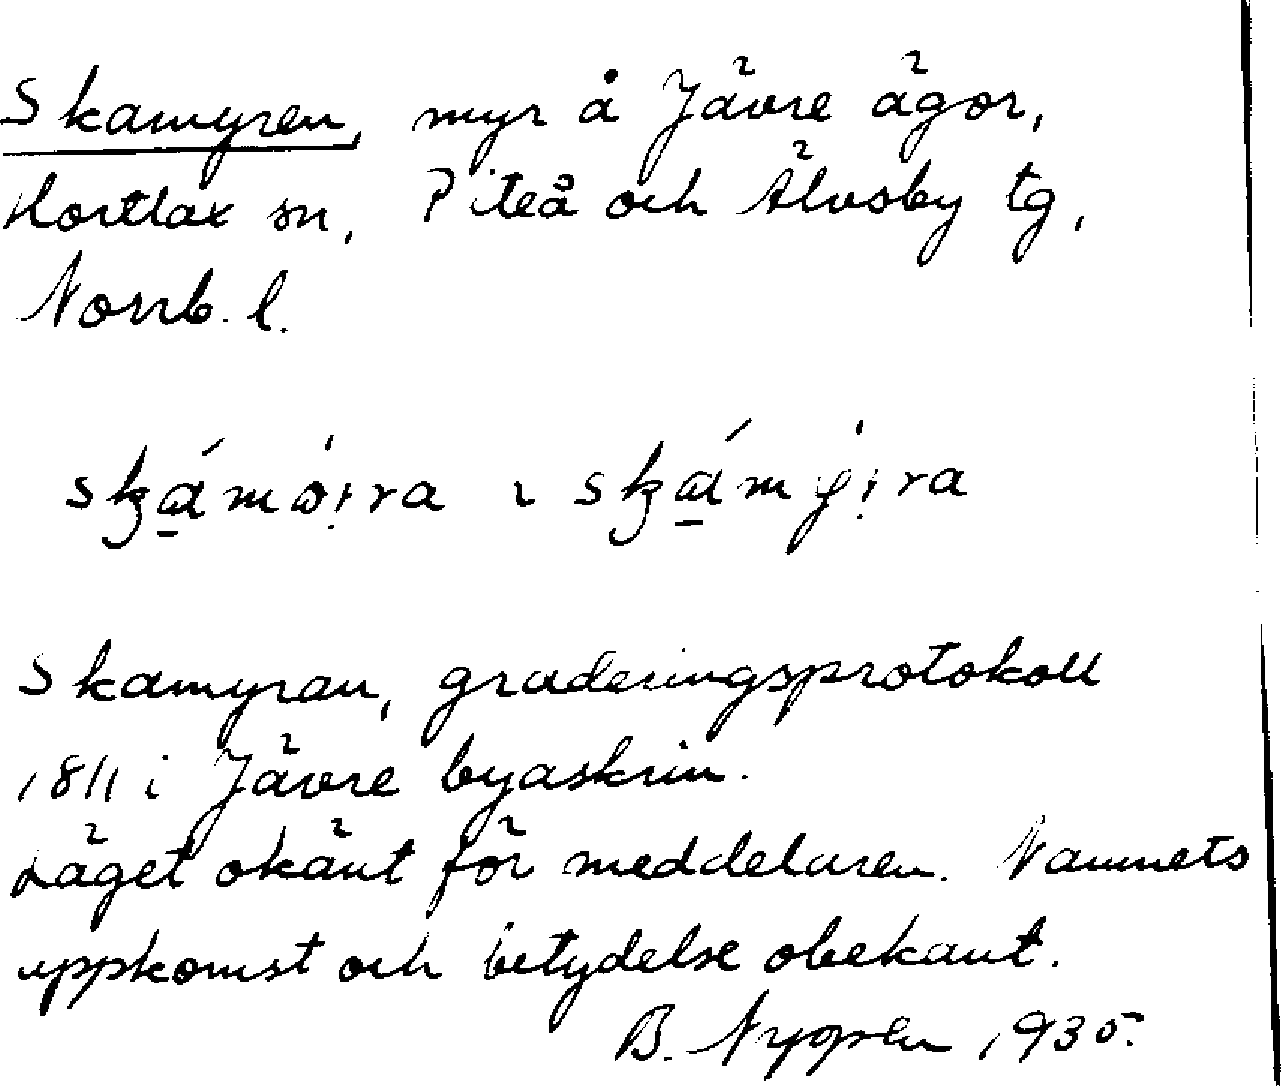 Skamyren, myr å Jävre ägor,
Hortlax sn, Piteå och Älvsby tg,
Norrb. l.
Skamyran, graderingsprotokoll
1811 i Jävre byaskrin.
Läget okänt för meddelaren. Namnets
uppkomst och betydelse obekant.
B. Nygren 1935.